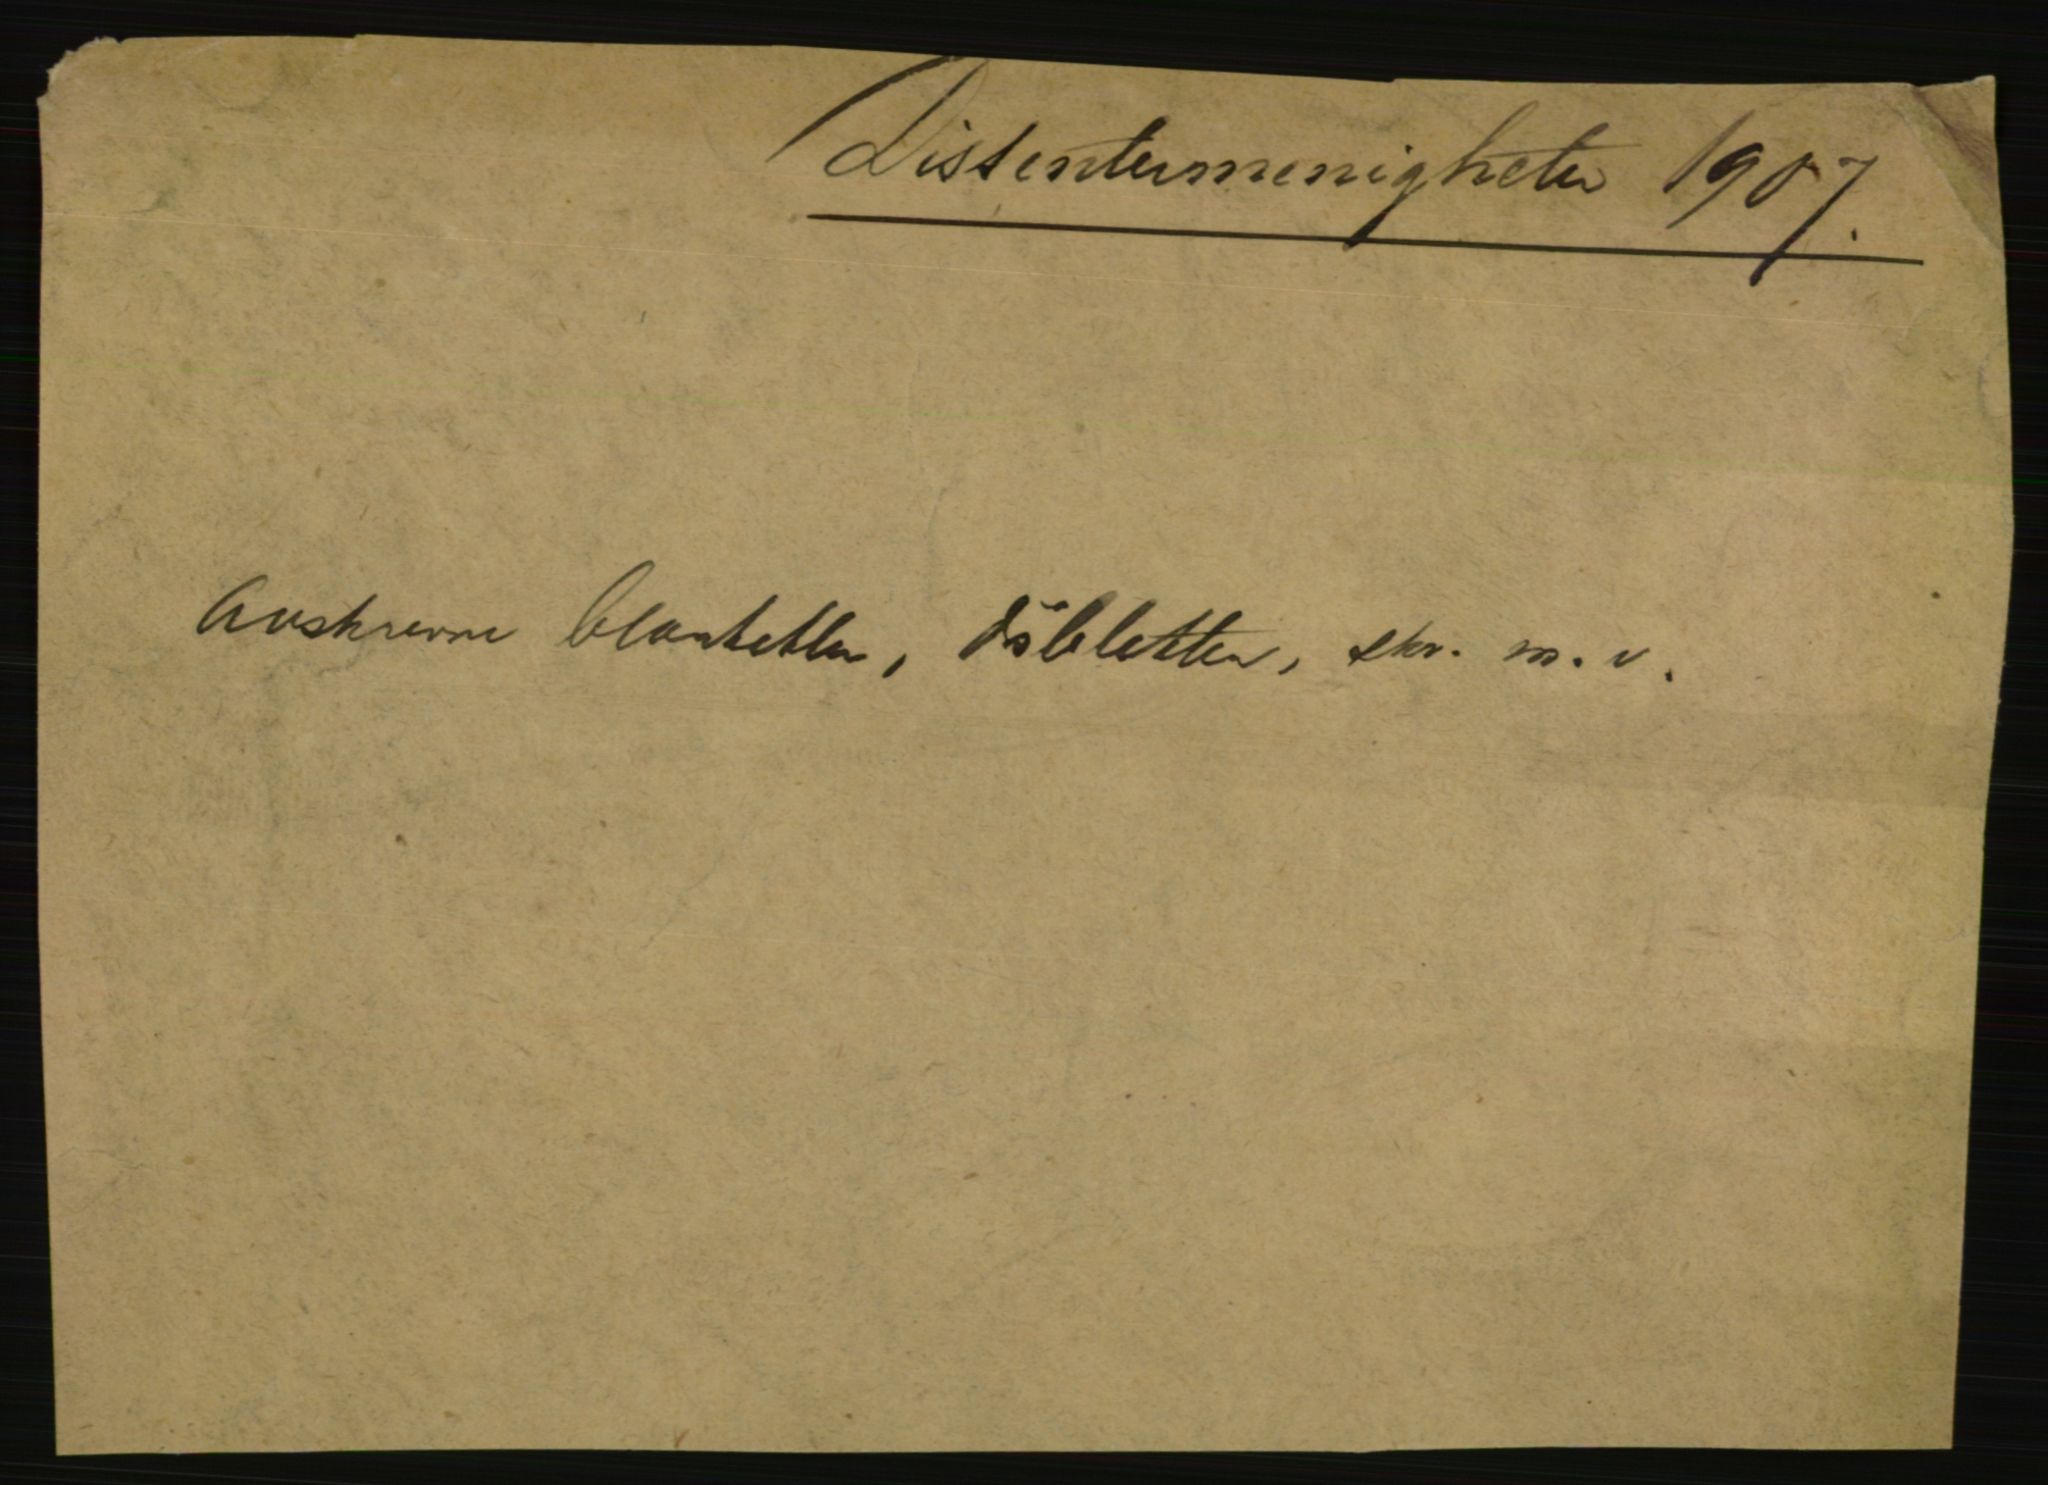 Dissentermenigheter 1907.
Avskrevne blanketter, löbletter, skr. m. v.